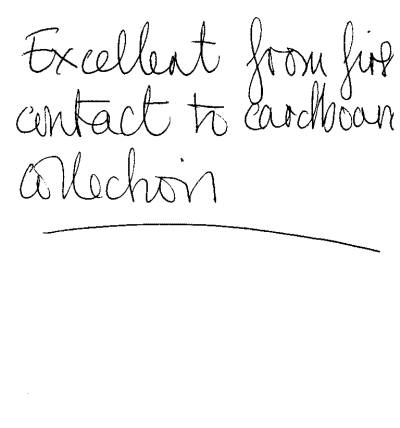 Excellent from firs
contact to cardboar
collection